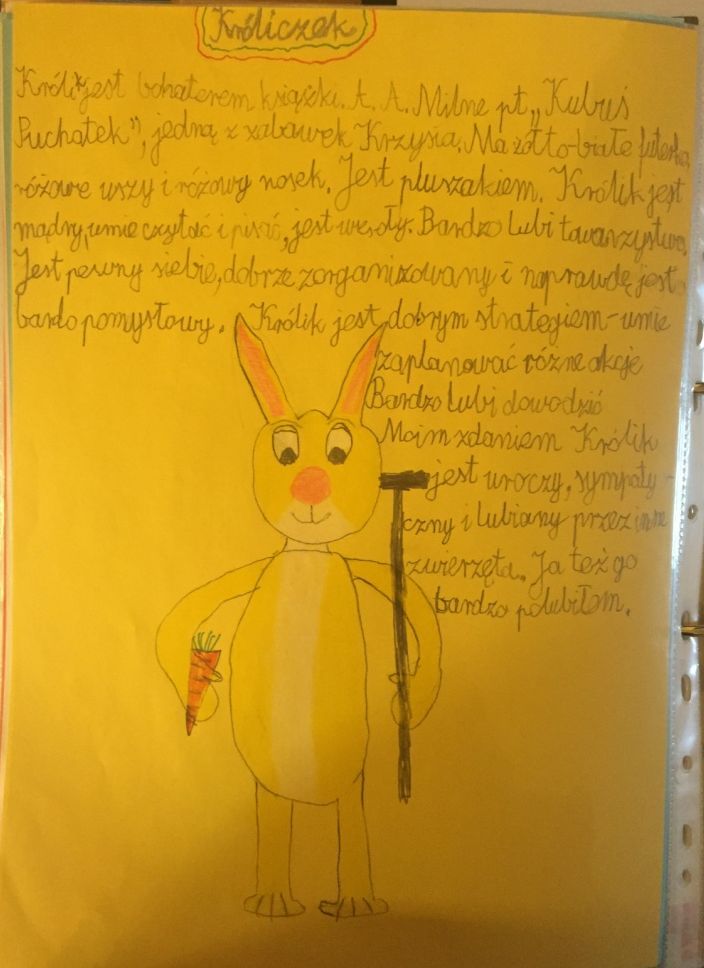 Króliczek
Królik jest bohaterem książki. A. A. Milne pt „Kubuś
Puchatek”, jedną z zabawek Krzysia. Ma żółto-białe futerko,
różowe uszy i różowy nosek. Jest pluszakiem. Królik jest
mądry, umie czytać i pisać, jest wesoły. Bardzo lubi towarzystwo.
Jest pewny siebie, dobrze zorganizowany i naprawdę jest
bardo pomysłowy. Królik jest dobrym strategiem - umie
zaplanować różne akcje
Bardzo lubi dowodzić
Moim zdaniem Królik
jest uroczy, sympaty-
czny i lubiany przez inne
zwierzęta. Ja też go
bardzo polubiłem.